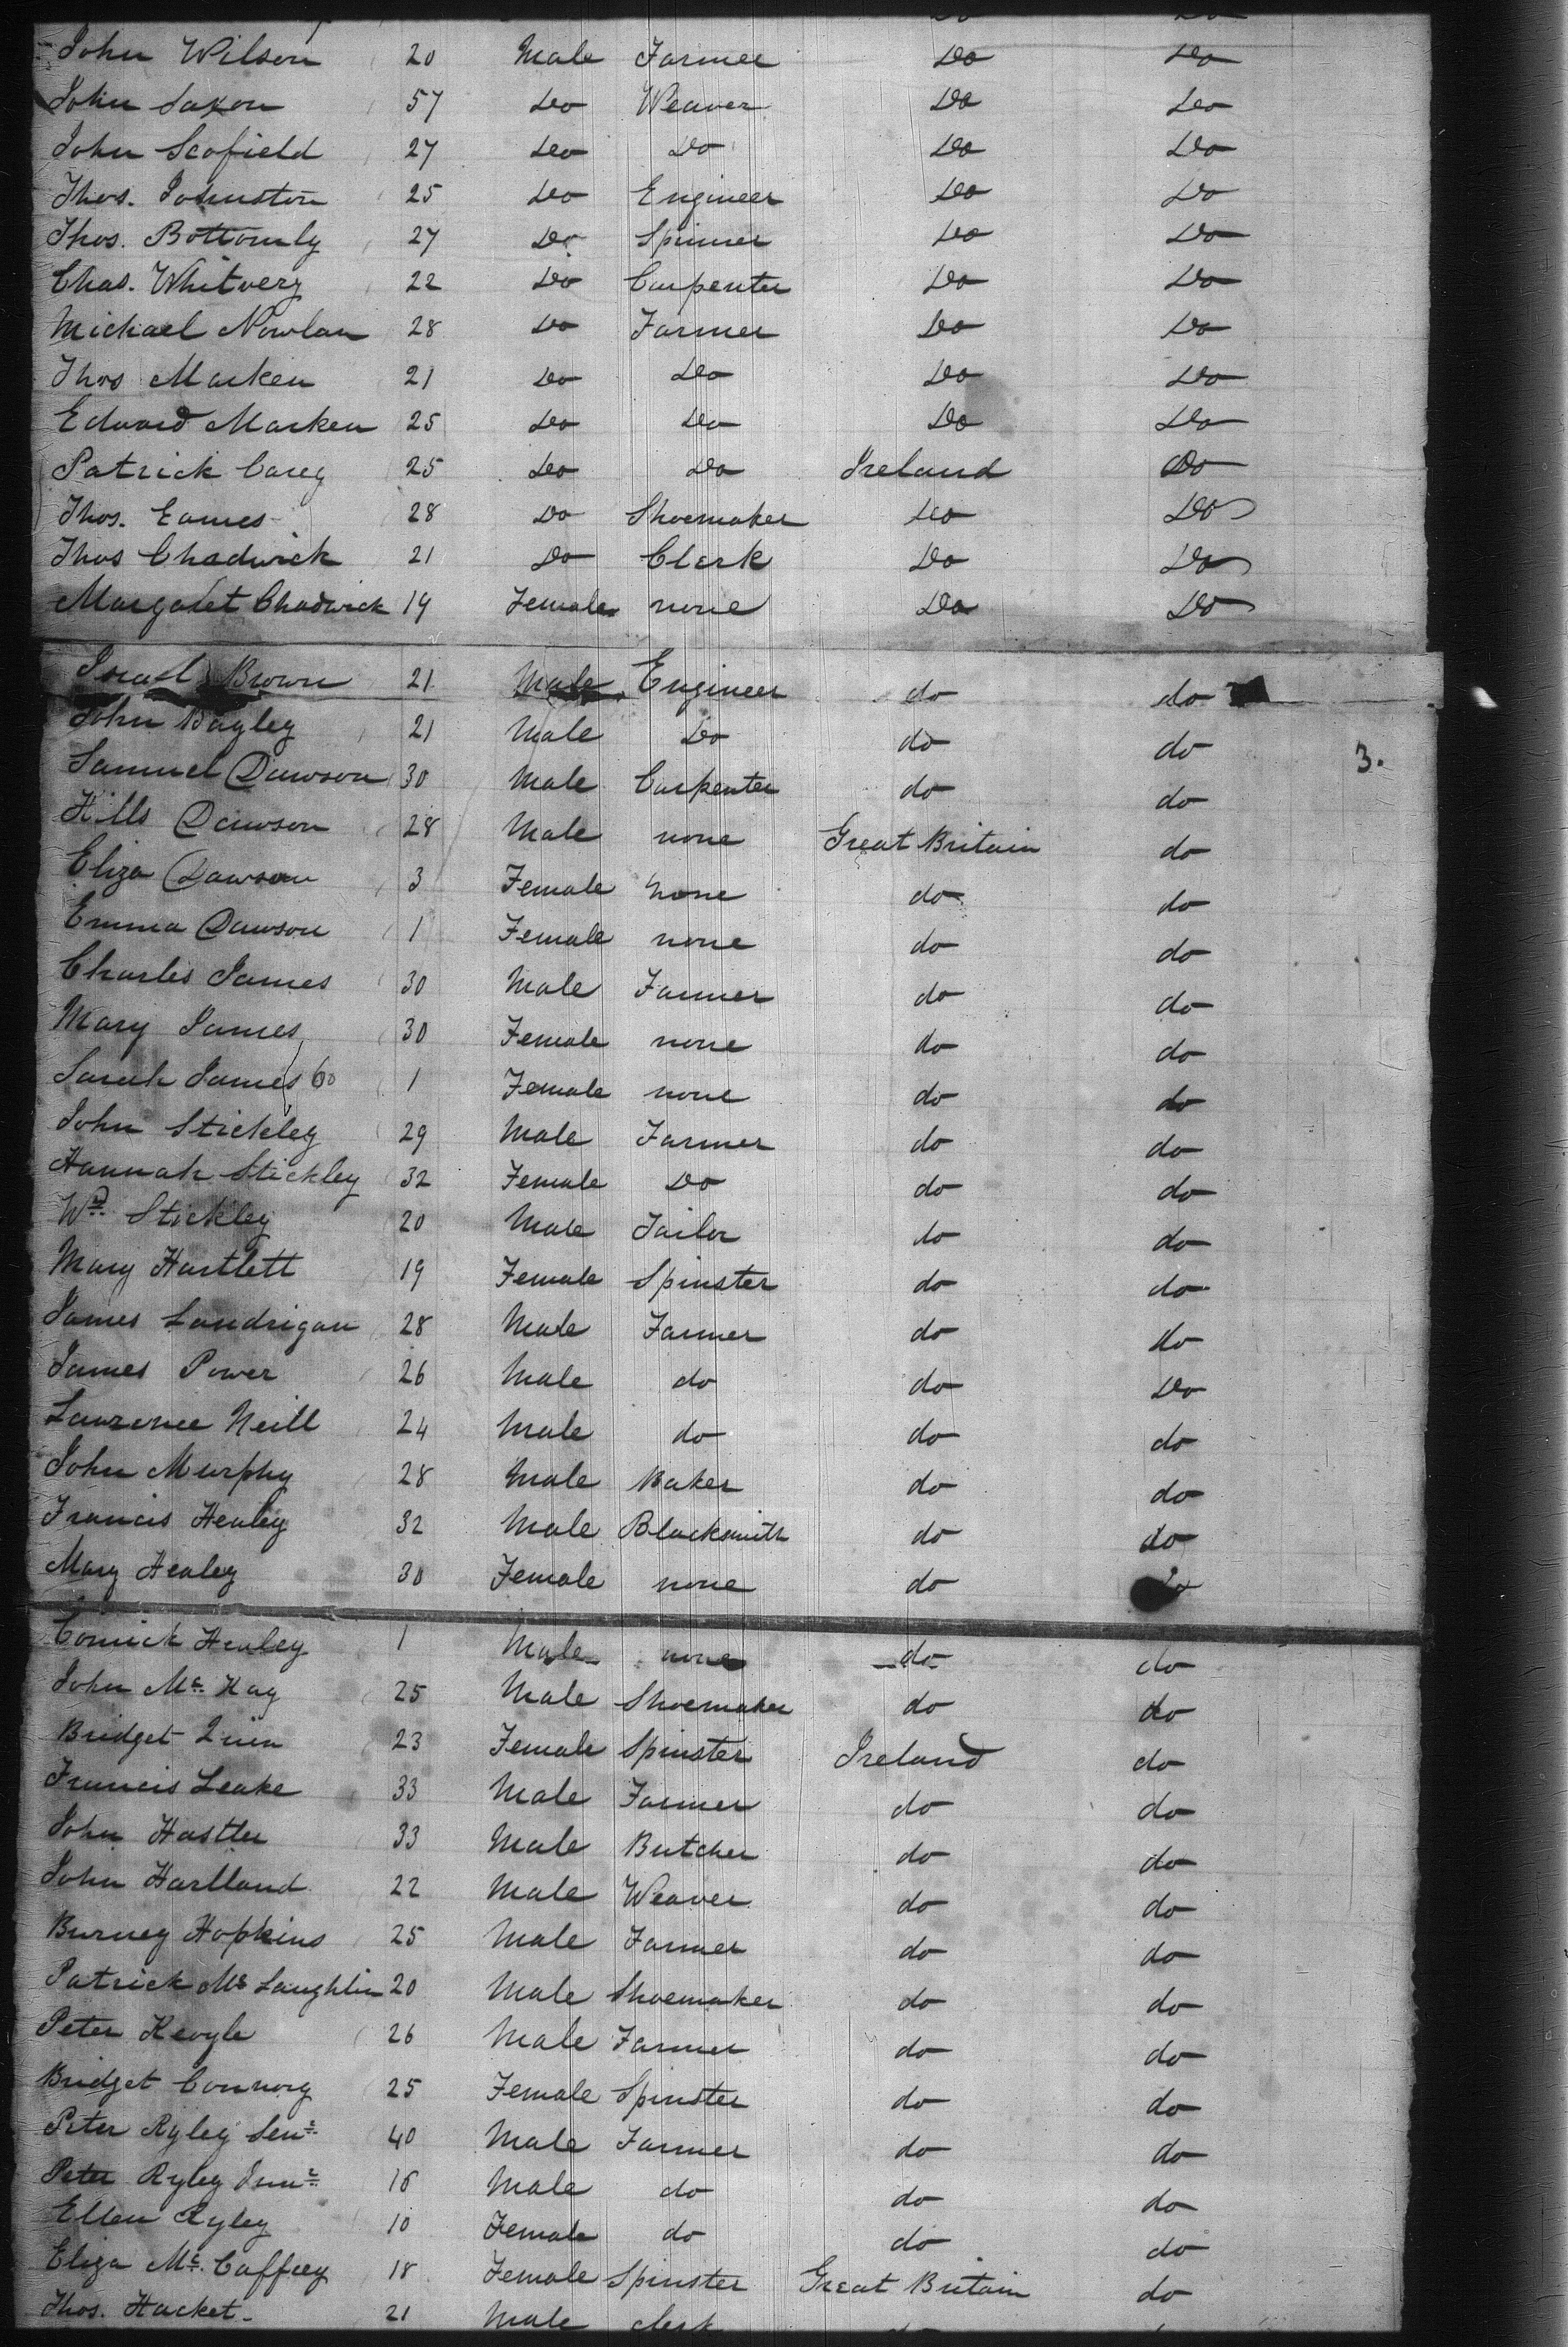 John Wilson 20 Male Farmer Do Do
John Saxon 57 Do Weaver Do Do
John Scofield 27 Do Do Do Do
Thos. Johnston 25 Do Engineer Do Do
Thos. Bottomly 27 Do Spinner Do Do
Chas. Whitvery 22 Do Carpenter Do Do
Michael Nowlan 28 Do Farmer Do Do
Thos Marken 21 Do Do Do Do
Edward Marken 25 Do Do Do Do
Patrick Carey 25 Do Do Ireland Do
Thos. Eames 28 Do Shoemaker Do Do
Thos Chadwick 21 Do Clerk Do Do
Margaret Chadwick 19 Female none Do Do
Israel Brown 21 Male Engineer do do
John Bagley 21 Male Do do do
3.
Samuel Dawson 30 Male Carpenter do do
Dawson 28 Male none Great Britain do
Eliza Dawson 3 Female none do do
Emma Dawson 1 Female none do do
Charles James 30 Male Farmer do do
Mary James 30 Female none do do
Sarah James 60 1 Female none do do
John Stickley 29 Male Farmer do do
Hannah Stickley 32 Female Do do do
Wm Stickley 20 Male Tailor do do
Mary Hartlett 19 Female Spinster do do
James Landrigan 28 Male Farmer do do
James Power 26 Male do do Do
Lawrence Neill 24 Male do do do
John Murphy 28 Male Baker do do
Francis Healey 32 Male Blacksmith do do
Mary Healey 30 Female none do do
Cormick Healey 1 Male none do do
John Mc. Kay 25 Male Shoemaker do do
Bridget Quin 23 Female Spinster Ireland do
Francis Leake 33 Male Farmer do do
John Hastler 33 Male Butcher do do
John Hartland 22 Male Weaver do do
Burney Hopkins 25 Male Farmer do do
Patrick Mc Laughlin 20 Male Shoemaker do do
Peter Keogle 26 Male Farmer do do
Bridget Connory 25 Female Spinster do do
Peter Ryley Senr. 40 Male Farmer do do
Peter Ryley Junr. 16 Male do do do
Ellen Ryley 10 Female do do do
Eliza Mc. Caffrey 18 Female Spinster Great Britain do
Thos. Hacket 21 Male clerk